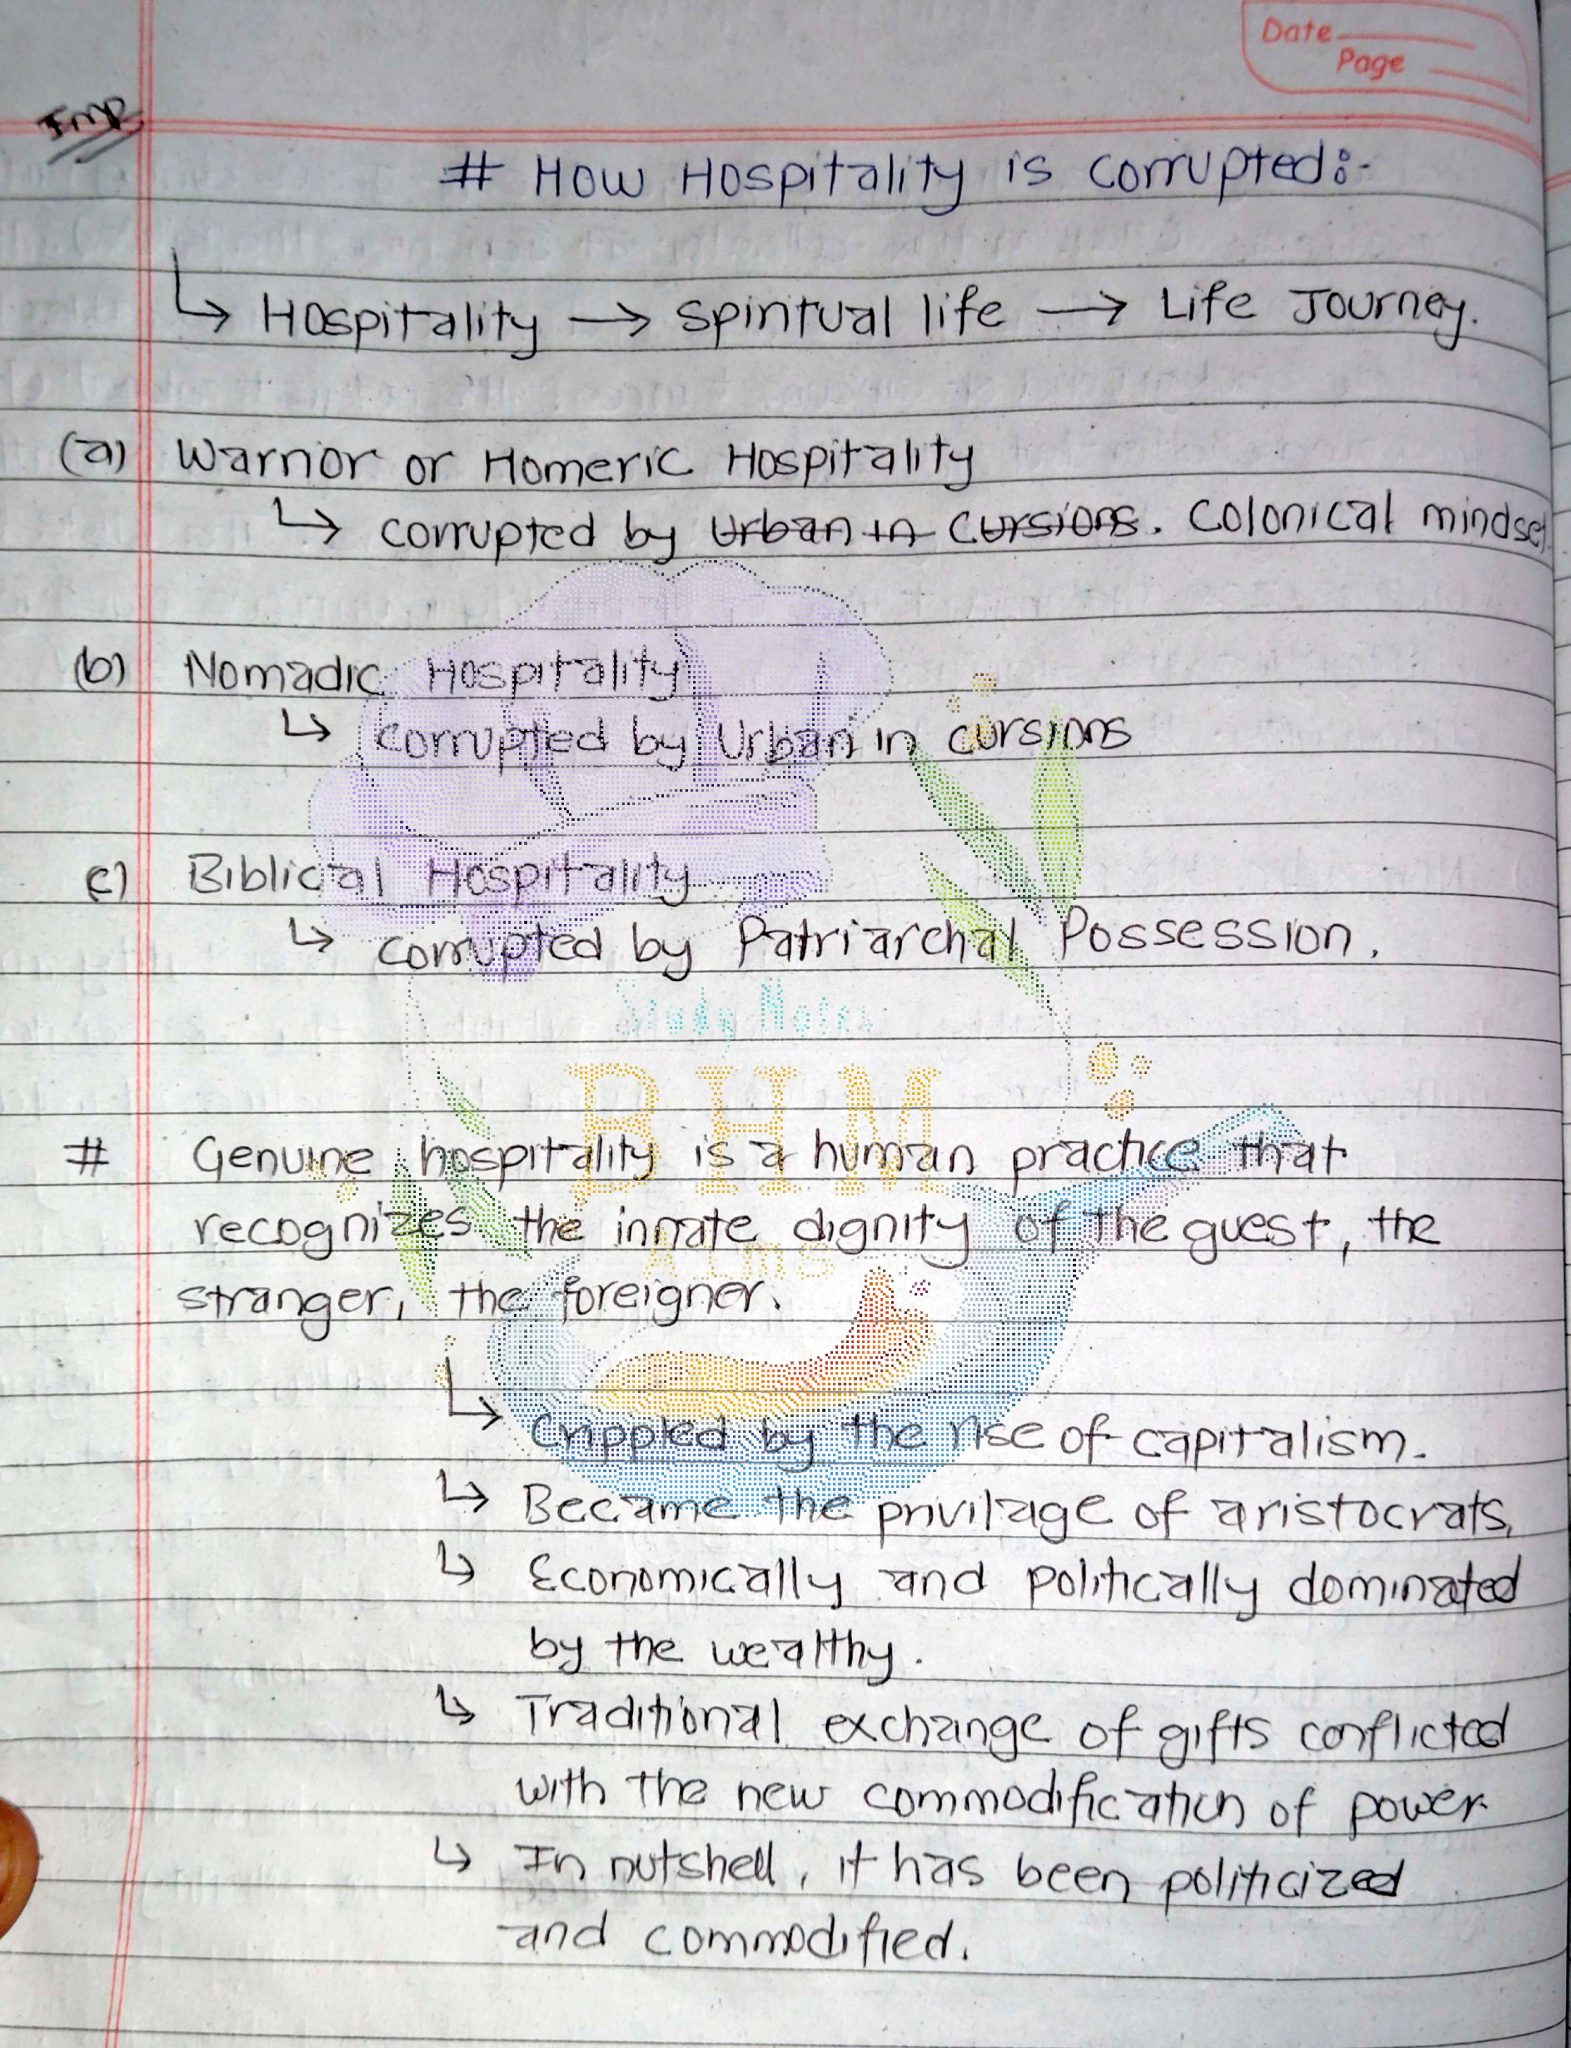 Date
Page
Imp
# How Hospitality is corrupted:-
↳ Hospitality → Spiritual life → Life Journey.
(a) Warrior or Homeric Hospitality
↳ corrupted by Urban in Cursions. Colonical mindset
(b) Nomadic Hospitality
↳ corrupted by Urban in cursions
c) Biblicial Hospitality
↳ corrupted by Patriarchal Possession.
Study Notes
BHM
# Genuine hospitality is a human practice that
recognizes the innate dignity of the guest, the
Alms
stranger, the foreigner.
↳ Crippled by the rise of capitalism.
↳ Became the privilage of aristocrats,
↳ Economically and politically dominated
by the wealthy.
↳ Traditional exchange of gifts conflicted
with the new commodification of power
↳ In nutshell, it has been politicized
and commodified.